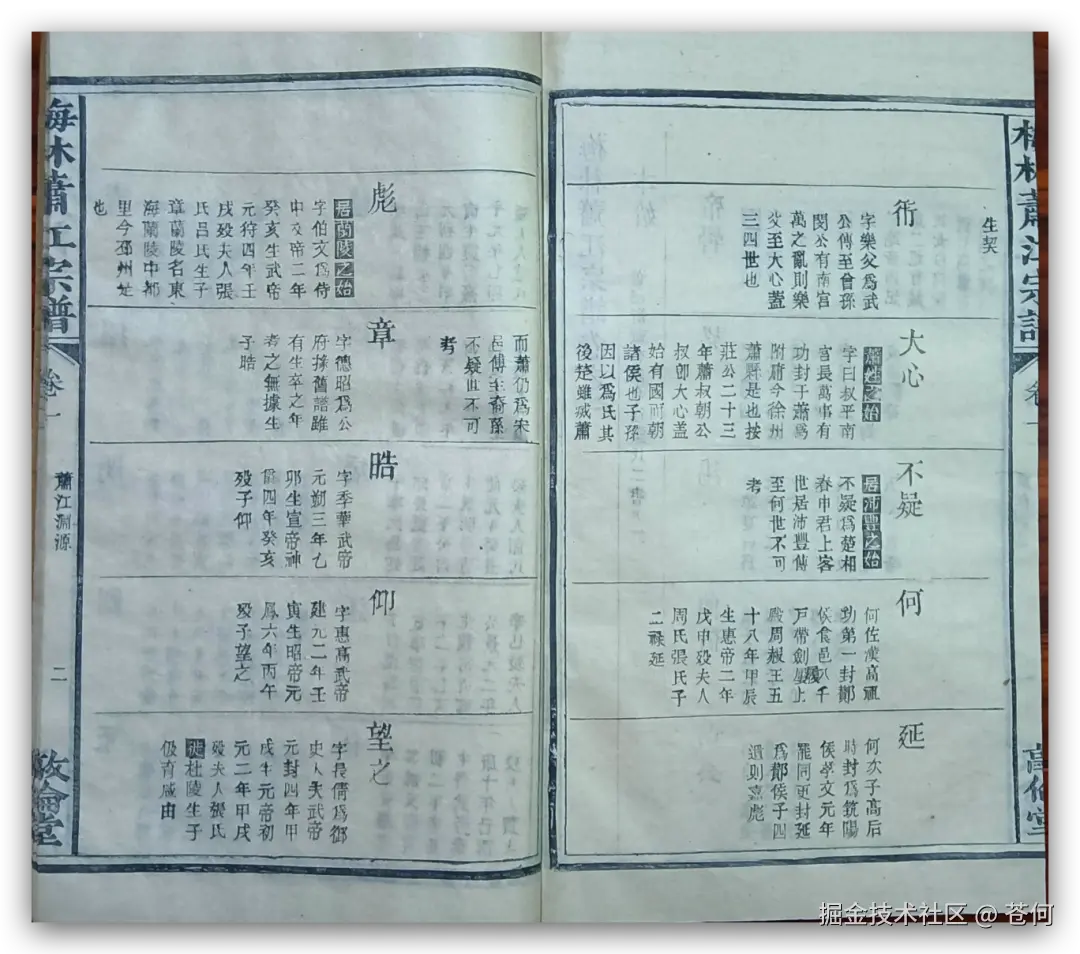 梅林蕭江宗譜
卷一
生契
衎
字樂父爲武
公傳至曾孫
閔公有南宮
萬之亂則樂
父至大心蓋
三四世也
大心
蕭姓之始
字曰叔平南
宮長萬事有
功封于蕭爲
附庸今徐州
蕭縣是也按
莊公二十三
年蕭叔朝公
叔卽大心蓋
始有國而朝
諸侯也子孫
因以爲氏其
後楚雖滅蕭
不疑
居沛豐之始
不疑爲楚相
春申君上客
世居沛豐傳
至何世不可
考
何
何佐漢高祖
功第一封酇
侯食邑八千
戶帶劍履上
殿周赧王五
十八年甲辰
生惠帝二年
戊申殁夫人
周氏張氏子
二祿延
延
何次子高后
時封爲筑陽
侯孝文元年
罷同更封延
爲酇侯子四
遺則嘉彪
而蕭仍爲宋
邑傳至裔孫
不疑世不可
考
彪
居蘭陵之始
字伯文爲侍
中文帝二年
癸亥生武帝
元狩四年壬
戌殁夫人張
氏呂氏生子
章蘭陵名東
海蘭陵中都
里今邳州是
也
章
字德昭爲公
府掾舊譜雖
有生卒之年
考之無據生
子晧
晧
字季華武帝
元朔三年乙
卯生宣帝神
爵四年癸亥
殁子仰
仰
字惠高武帝
建元二年壬
寅生昭帝元
鳳六年丙午
殁子望之
望之
字長倩爲御
史大夫武帝
元封四年甲
戌生元帝初
元二年甲戌
殁夫人張氏
徙杜陵生子
伋育咸由
梅林蕭江宗譜
卷一
蕭江淵源
二
敦倫堂
掘金技术社区 @ 苍何